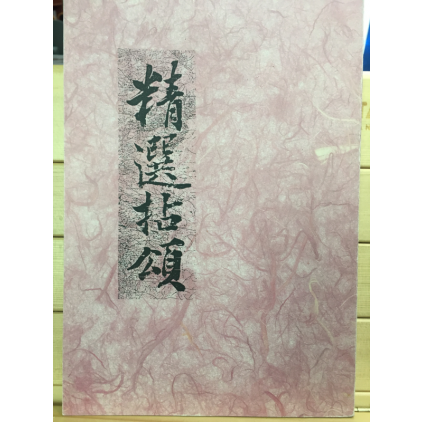 精選拈頌